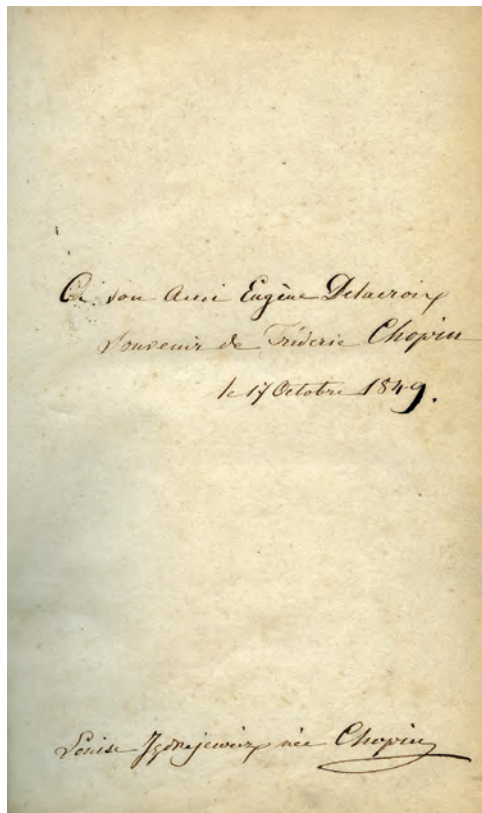 A son Ami Eugène Delacroix
Souvenir de Fréderic Chopin
le 17 Octobre 1849.
Louise Jędrejewicz née Chopin